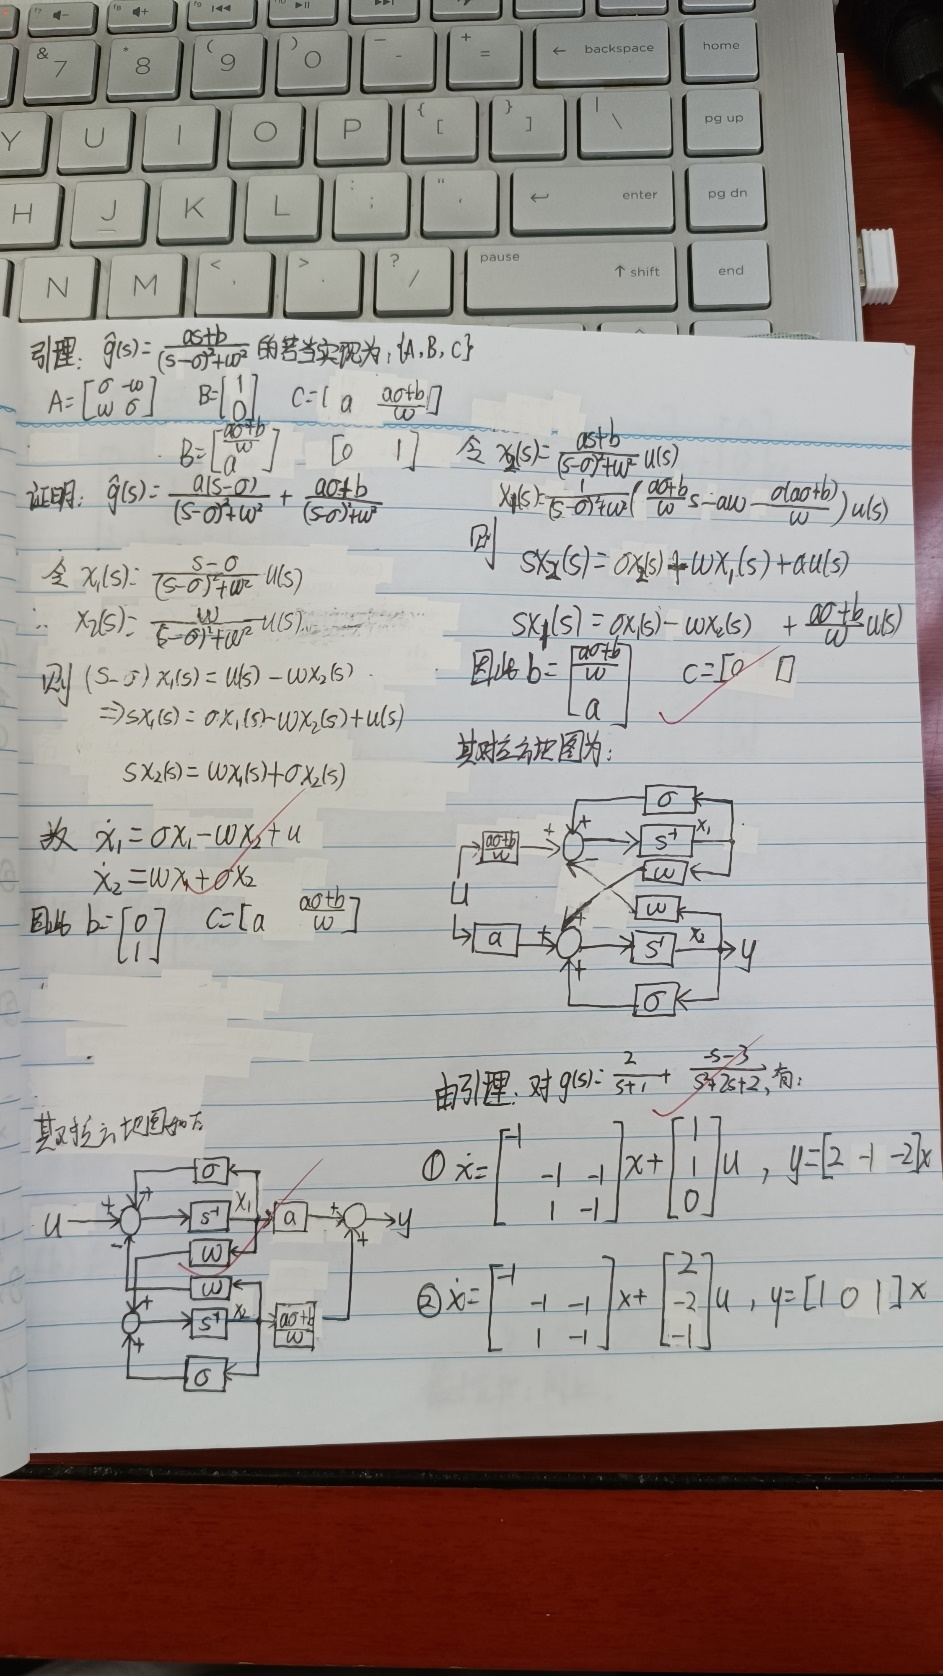 & 7
* 8
( 9
) 0
_ -
+ =
← backspace
home
Y
U
I
O
P
{ [
} ]
| \
pg up
H
J
K
L
: ;
" '
enter
pg dn
N
M
<
>
? /
pause
↑ shift
end
引理: ĝ(s)=(as+b)/((s-σ)²+ω²) 的若当实现为:{A,B,C}
A=[σ -ω; ω σ] B=[1; 0] C=[a (aσ+b)/ω]
B=[(aσ+b)/ω; a] [0 1]
证明: ĝ(s)=a(s-σ)/((s-σ)²+ω²) + (aσ+b)/((s-σ)²+ω²)
令 x₁(s)=(s-σ)/((s-σ)²+ω²) u(s)
x₂(s)=ω/((s-σ)²+ω²) u(s)
则 (s-σ)x₁(s)=u(s)-ωx₂(s)
⇒sx₁(s)=σx₁(s)-ωx₂(s)+u(s)
sx₂(s)=ωx₁(s)+σx₂(s)
故 ẋ₁=σx₁-ωx₂+u
ẋ₂=ωx₁+σx₂
因此 b=[0; 1] C=[a (aσ+b)/ω]
其对应方块图如下
σ
u + + s⁻¹ x₁ a + y
- ω +
ω
+ s⁻¹ x₂ (aσ+b)/ω
+ σ
令 x₂(s)=(as+b)/((s-σ)²+ω²) u(s)
x₁(s)=1/((s-σ)²+ω²) ((aσ+b)/ω s-aω-σ(aσ+b)/ω) u(s)
则
sx₂(s)=σx₂(s)+ωx₁(s)+au(s)
sx₁(s)=σx₁(s)-ωx₂(s) +(aσ+b)/ω u(s)
因此 b=[(aσ+b)/ω; a] C=[0 ]
其对应方块图为:
σ
(aσ+b)/ω + + s⁻¹ x₁
- ω
u
+ ω
a + s⁻¹ x₂ y
+ σ
由引理,对 g(s)=2/(s+1)+(-s-3)/(s²+2s+2),有:
① ẋ=[-1; -1 -1; 1 -1]x+[1; 1; 0]u , y=[2 -1 -2]x
② ẋ=[-1; -1 -1; 1 -1]x+[2; -2; -1]u , y=[1 0 1]x